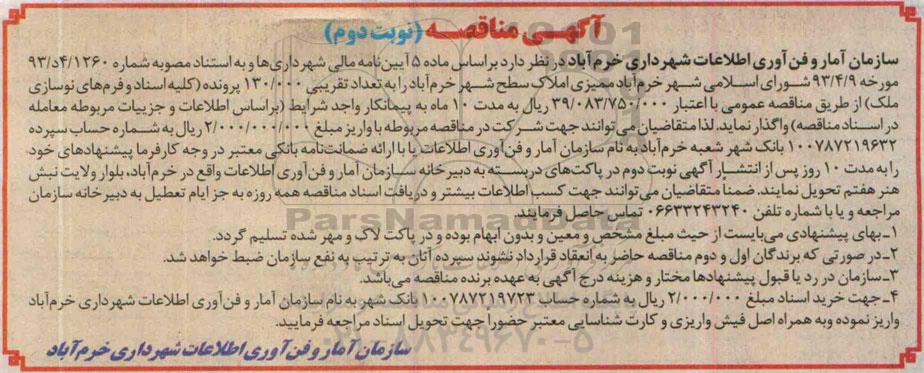 آگهـی مناقصـه (نوبت دوم)
سازمان آمار و فن آوری اطلاعات شهرداری خرم آباد در نظر دارد براساس ماده ۵ آیین‌نامه مالی شهرداری‌ها و به استناد مصوبه شماره ۴/۱۲۶۰د/۹۳
مورخه ۹۳/۴/۹ شورای اسـلامی شهر خرم‌آباد ممیزی املاک سطح شهر خرم‌آباد را به تعداد تقریبی ۱۳۰/۰۰۰ پرونده (کلیه اسناد و فرم‌های نوسازی
ملک) از طریق مناقصه عمومی با اعتبار ۳۹/۰۸۳/۷۵۰/۰۰۰ ریال به مدت ۱۰ ماه به پیمانکار واجد شرایط (براساس اطلاعات و جزییات مربوطه معامله
در اسـناد مناقصه) واگذار نماید. لذا متقاضیان می‌توانند جهت شـرکت در مناقصه مربوطه با واریز مبلغ ۲/۰۰۰/۰۰۰/۰۰۰ ریال به شـماره حساب سپرده
۱۰۰۷۸۷۲۱۹۶۳۲ بانک شهر شعبه خرم‌آباد به نام سازمان آمار و فن‌آوری اطلاعات یا با ارائه ضمانت‌نامه بانکی معتبر در وجه کارفرما پیشنهادهای خود
را به مدت ۱۰ روز پس از انتشـار آگهی نوبت دوم در پاکت‌های دربسـته به دبیرخانه سـازمان آمار و فن‌آوری اطلاعات واقع در خرم‌آباد، بلوار ولایت نبش
هنر هفتم تحویل نمایند. ضمناً متقاضیان می‌توانند جهت کسب اطلاعات بیشتر و دریافت اسناد مناقصه همه روزه به جز ایام تعطیل به دبیرخانه سازمان
مراجعه و یا با شماره تلفن ۰۶۶۳۳۲۴۳۲۴۰ تماس حاصل فرمایند
۱ـ بهای پیشنهادی می‌بایست از حیث مبلغ مشخص و معین و بدون ابهام بوده و در پاکت لاک و مهر شده تسلیم گردد.
۲ـ در صورتی که برندگان اول و دوم مناقصه حاضر به انعقاد قرارداد نشوند سپرده آنان به ترتیب به نفع سازمان ضبط خواهد شد.
۳ـ سازمان در رد یا قبول پیشنهادها مختار و هزینه درج آگهی به عهده برنده مناقصه می‌باشد.
۴ـ جهت خرید اسناد مبلغ ۲/۰۰۰/۰۰۰ ریال به شماره حساب ۱۰۰۷۸۷۲۱۹۷۲۳ بانک شهر به نام سازمان آمار و فن‌آوری اطلاعات شهرداری خرم‌آباد
واریز نموده و به همراه اصل فیش واریزی و کارت شناسایی معتبر حضورا جهت تحویل اسناد مراجعه فرمایید.
سازمان آمار و فن آوری اطلاعات شهرداری خرم آباد
ParsNamadData